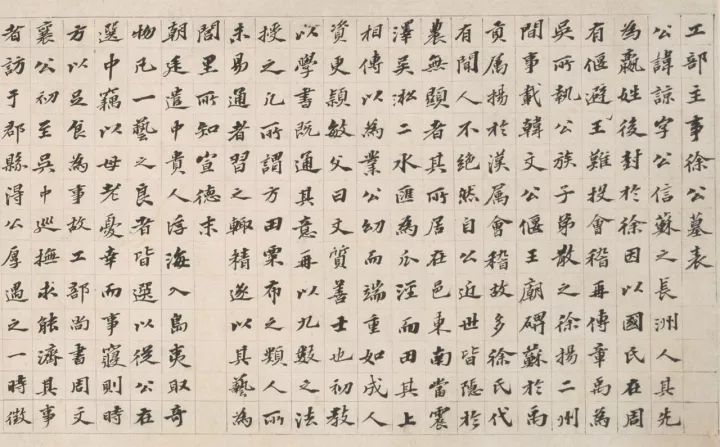 工部主事徐公墓表
公諱諒字公信蘇之長洲人其先
為嬴姓後封於徐因以國氏在周
有偃避王難投會稽再傳章禹為
吳所執公族子弟散之徐揚二州
間事載韓文公偃王廟碑蘇於禹
貢属揚於漢属會稽故多徐氏代
有聞人不絕然自公近世皆隱於
農無顯者其所居在邑東南當震
澤吳淞二水匯為瓜涇而田其上
相傳以為業公幼而端重如成人
資更穎敏父曰文質善士也初教
以學書既通其意再以九數之法
授之凡所謂方田粟布之類人所
未易通者習之輙精遂以其藝為
閭里所知宣德末
朝廷遣中貴人浮海入島夷取奇
物凡一藝之良者皆選以從公在
選中竊以母老憂幸而事寢則時
方以足食為事故工部尚書周文
襄公初至吳中巡撫求能濟其事
者訪于郡縣得公厚遇之一時徵